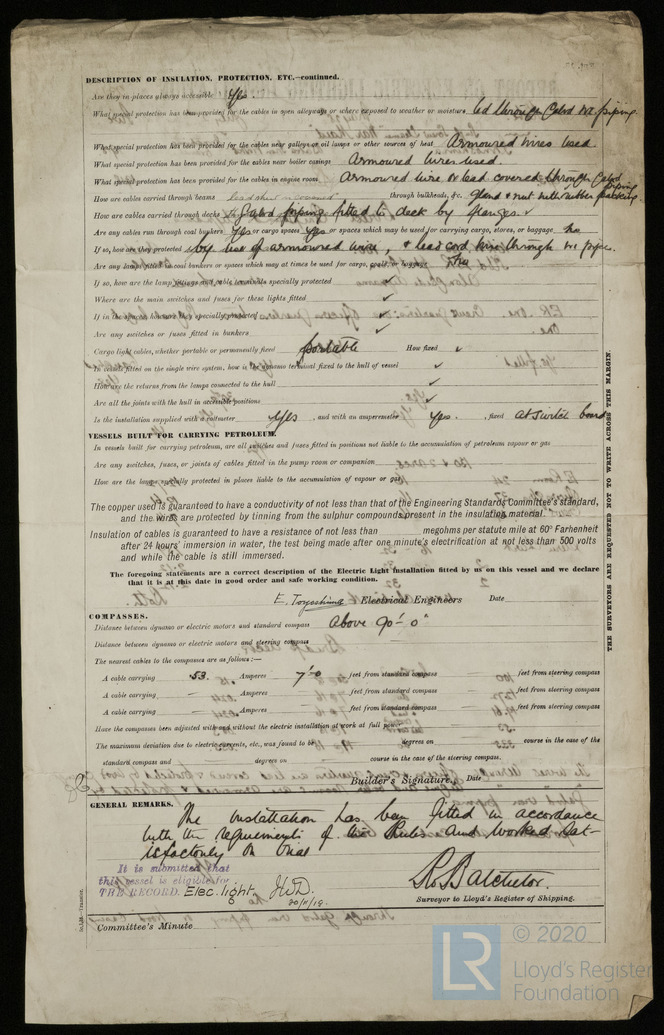 DESCRIPTION OF INSULATION, PROTECTION, ETC.—continued.
Are they in places always accessible Yes
What special protection has been provided for the cables in open alleyways or where exposed to weather or moisture led through Galvd iron piping
What special protection has been provided for the cables near galleys or oil lamps or other sources of heat Armoured wires used
What special protection has been provided for the cables near boiler casings Armoured wires used.
What special protection has been provided for the cables in engine room Armoured wire or lead covered through Galvd piping
How are cables carried through beams through bulkheads, &c. gland & nut with rubber packing
How are cables carried through decks Galvd piping fitted to deck by flanges.
Are any cables run through coal bunkers Yes or cargo spaces Yes or spaces which may be used for carrying cargo, stores, or baggage No
If so, how are they protected by use of armoured wire, & lead covd wire through iron pipe.
Are any lamps fitted in coal bunkers or spaces which may at times be used for cargo, coals, or baggage
If so, how are the lamp fittings and cable terminals specially protected ✓
Where are the main switches and fuses for these lights fitted ✓
If in the spaces how are they specially protected ✓
Are any switches or fuses fitted in bunkers ✓
Cargo light cables, whether portable or permanently fixed portable How fixed ✓
In vessels fitted on the single wire system, how is the dynamo terminal fixed to the hull of vessel ✓
How are the returns from the lamps connected to the hull ✓
Are all the joints with the hull in accessible positions ✓
Is the installation supplied with a voltmeter Yes , and with an amperemeter Yes. , fixed at switch board
VESSELS BUILT FOR CARRYING PETROLEUM.
In vessels built for carrying petroleum, are all switches and fuses fitted in positions not liable to the accumulation of petroleum vapour or gas
Are any switches, fuses, or joints of cables fitted in the pump room or companion
How are the lamps specially protected in places liable to the accumulation of vapour or gas
The copper used is guaranteed to have a conductivity of not less than that of the Engineering Standards Committee's standard,
and the wires are protected by tinning from the sulphur compounds present in the insulating material
Insulation of cables is guaranteed to have a resistance of not less than megohms per statute mile at 60° Farhenheit
after 24 hours' immersion in water, the test being made after one minute's electrification at not less than 500 volts
and while the cable is still immersed.
The foregoing statements are a correct description of the Electric Light installation fitted by us on this vessel and we declare
that it is at this date in good order and safe working condition.
E. Toyoshima Electrical Engineers Date
COMPASSES.
Distance between dynamo or electric motors and standard compass Above 90'- 0"
Distance between dynamo or electric motors and steering compass
The nearest cables to the compasses are as follows:—
A cable carrying .53. Amperes 7'-0 feet from standard compass feet from steering compass
A cable carrying — Amperes — feet from standard compass — feet from steering compass
A cable carrying — Amperes — feet from standard compass — feet from steering compass
Have the compasses been adjusted with and without the electric installation at work at full power
The maximum deviation due to electric currents, etc., was found to be degrees on course in the case of the
standard compass and — degrees on — course in the case of the steering compass.
Builder's Signature. Date
GENERAL REMARKS.
The installation has been fitted in accordance
with the requirements of the Rules and worked sat-
isfactorily on trial
It is submitted that
this vessel is eligible for
THE RECORD. Elec. light. JWD.
20/11/19.
R. Batchelor.
Surveyor to Lloyd's Register of Shipping.
Committee's Minute
THE SURVEYORS ARE REQUESTED NOT TO WRITE ACROSS THIS MARGIN.
© 2020
LR
Lloyd's Register
Foundation